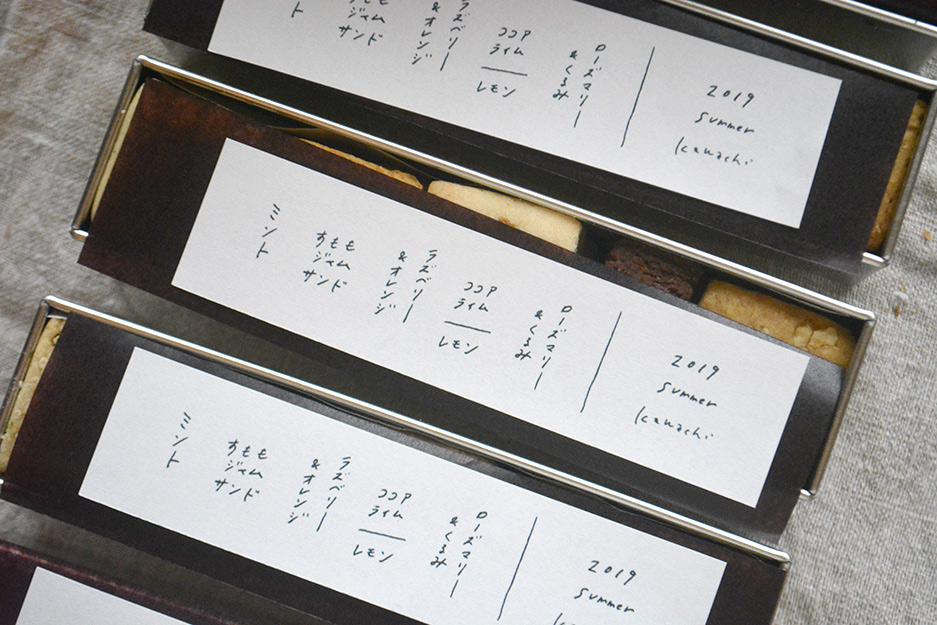 2019
summer
kawachi
ローズマリー
&くるみ
ココア
ライム
レモン
ラズベリー
&オレンジ
すもも
ジャム
サンド
ト
2019
summer
kawachi
ローズマリー
&くるみ
ココア
ライム
レモン
ラズベリー
&オレンジ
すもも
ジャム
サンド
ミント
2019
summer
ローズマリー
&くるみ
ココア
ライム
レモン
ラズベリー
&オレンジ
すもも
ジャム
サンド
ミント